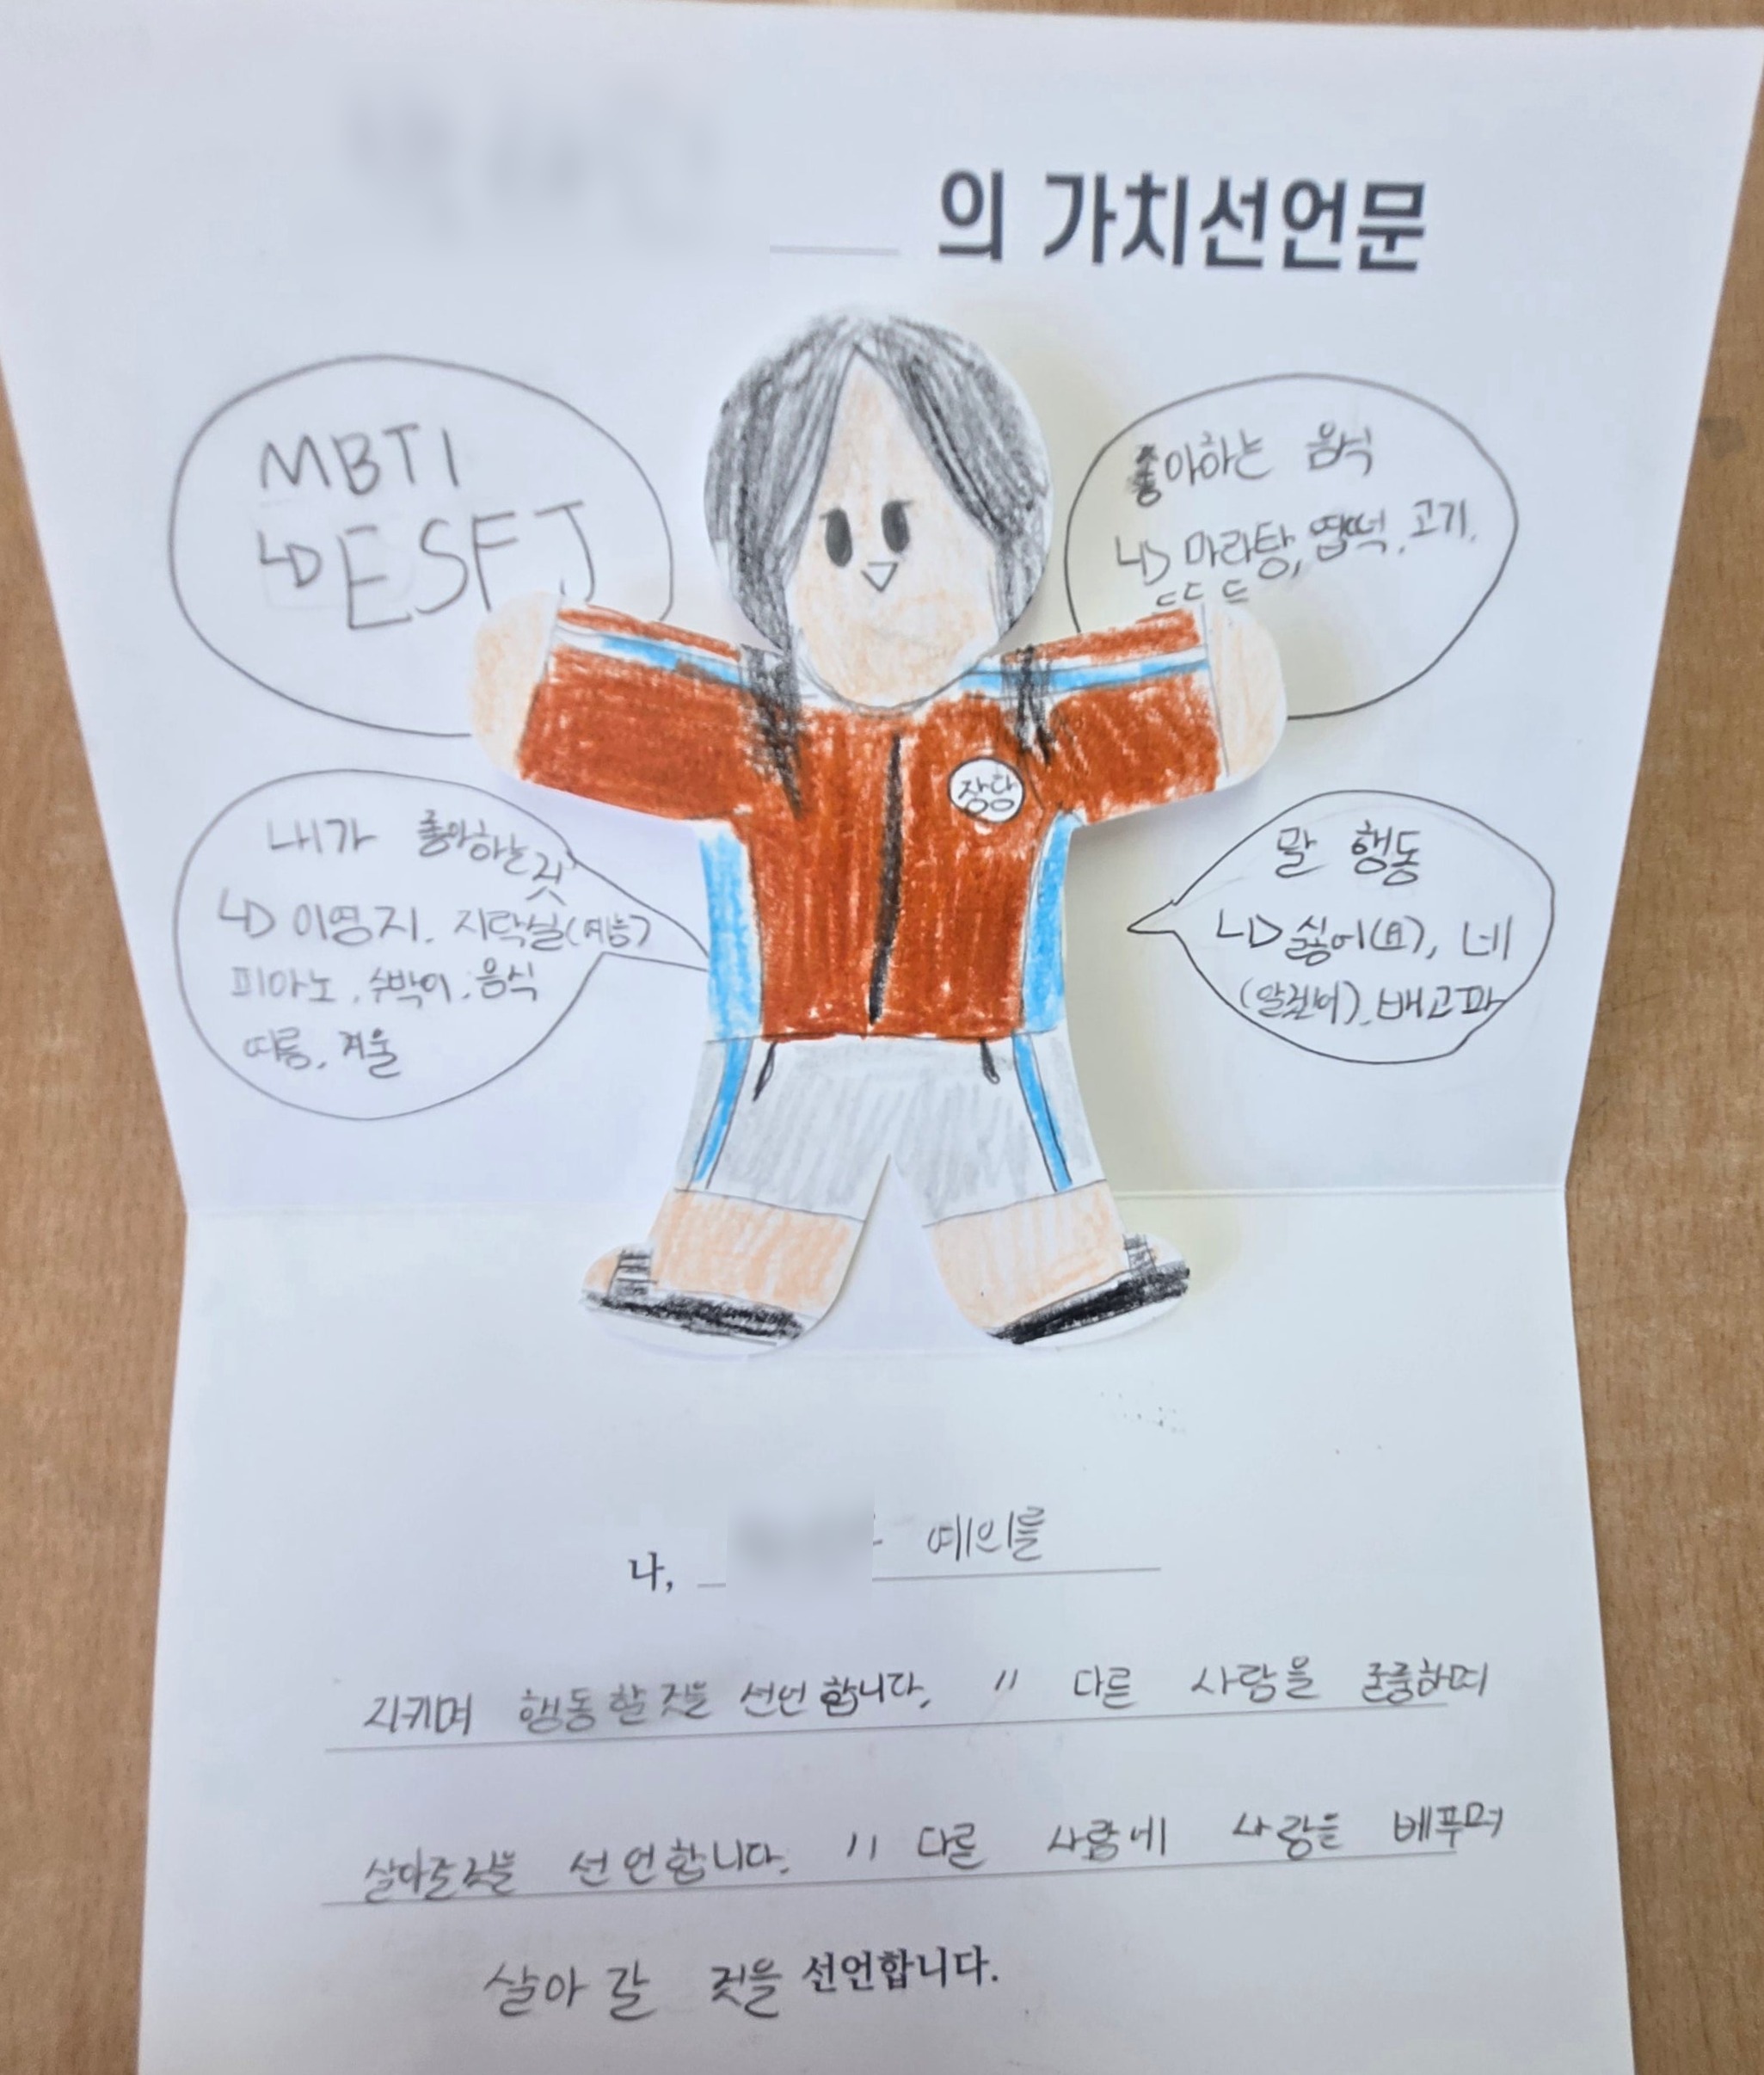 의 가치선언문
MBTI
ESFJ
좋아하는 음식
마라탕, 엽떡, 고기,
장당
내가 좋아하는것
이영지, 지락실(예능)
피아노, 수박이, 음식
여름, 겨울
말 행동
싫어(요), 네
(알겠어), 배고파
나, 예의를
지키며 행동할 것을 선언합니다. // 다른 사람을 존중하며
살아갈것을 선언합니다. // 다른 사람에 사랑을 베푸며
살아 갈 것을 선언합니다.